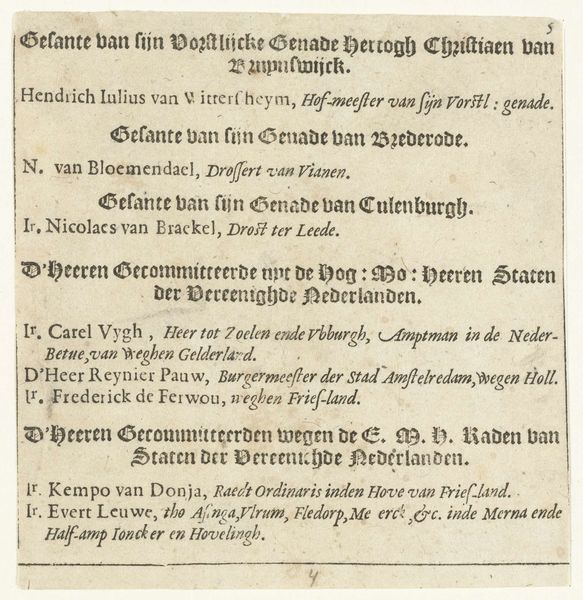 5
Gesante van sijn Vorstlijcke Genade Hertogh Christiaen van
Brunswijck.
Hendrich Iulius van Wittersheym, Hof-meester van sijn Vorstl: genade.
Gesante van sijn Genade van Brederode.
N. van Bloemendael, Drossert van Vianen.
Gesante van sijn Genade van Culenburgh.
Ir. Nicolaes van Brackel, Drost ter Leede.
D'Heeren Gecommitteerde uyt de Hog: Mo: Heeren Staten
der Vereenighde Nederlanden.
Ir. Carel Vygh, Heer tot Zoelen ende Vbburgh, Amptman in de Neder-
Betue, van weghen Gelderland.
D'Heer Reynier Pauw, Burgermeester der Stad Amstelredam, wegen Holl.
Ir. Frederick de Ferwou, weghen Fries-land.
D'Heeren Gecommitteerden wegen de E. M. H. Raden van
Staten der Vereenichde Nederlanden.
Ir. Kempo van Donja, Raedt Ordinaris inden Hove van Fries-land.
Ir. Evert Leuwe, tho Asinga, Ulrum, Fledorp, &c. inde Merna ende
Half-amp Ioncker en Hovelingh.
4